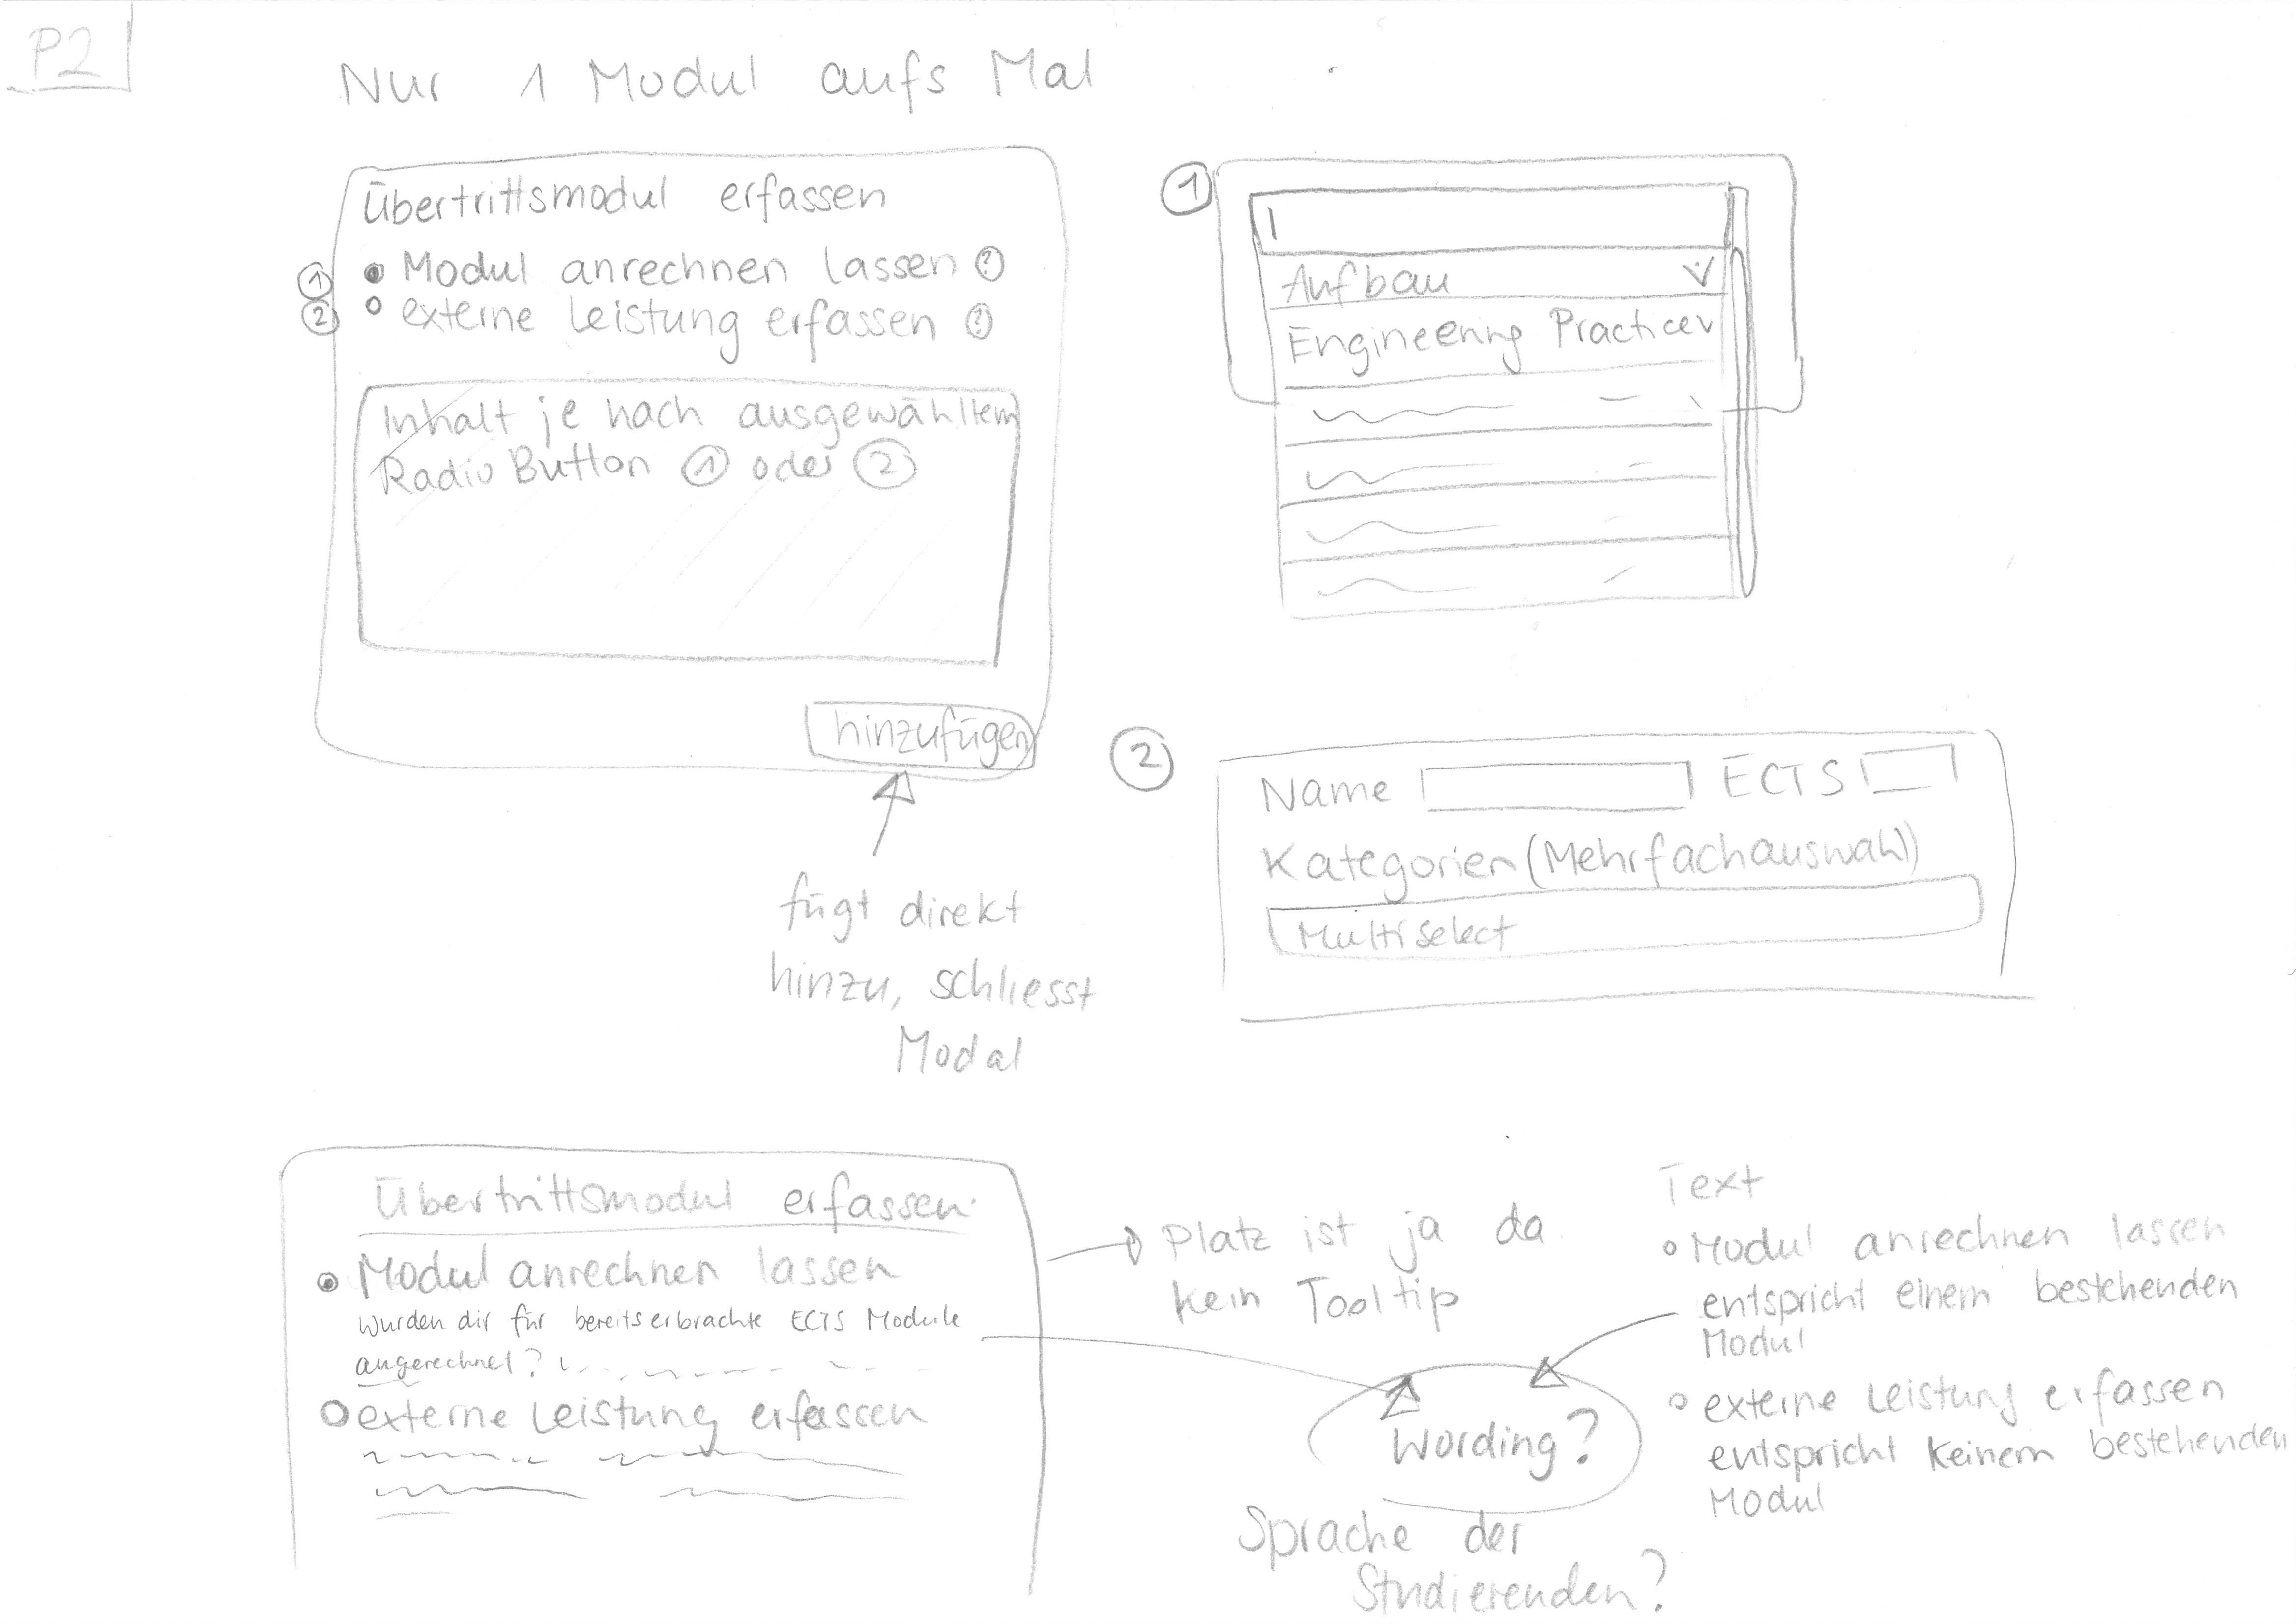 P2
Nur 1 Modul aufs Mal
Übertrittsmodul erfassen
1 Modul anrechnen lassen ?
2 externe Leistung erfassen ?
Inhalt je nach ausgewähltem
Radio Button 1 oder 2
hinzufügen
fügt direkt
hinzu, schliesst
Modal
1
Aufbau
Engineering Practice
2
Name ECTS
Kategorien (Mehrfachauswahl)
Multiselect
Übertrittsmodul erfassen
Modul anrechnen lassen
Wurden dir für bereits erbrachte ECTS Module
angerechnet?
externe Leistung erfassen
Platz ist ja da
kein Tooltip
Text
Modul anrechnen lassen
entspricht einem bestehenden
Modul
externe Leistung erfassen
entspricht keinem bestehenden
Modul
Wording?
Sprache der
Studierenden?